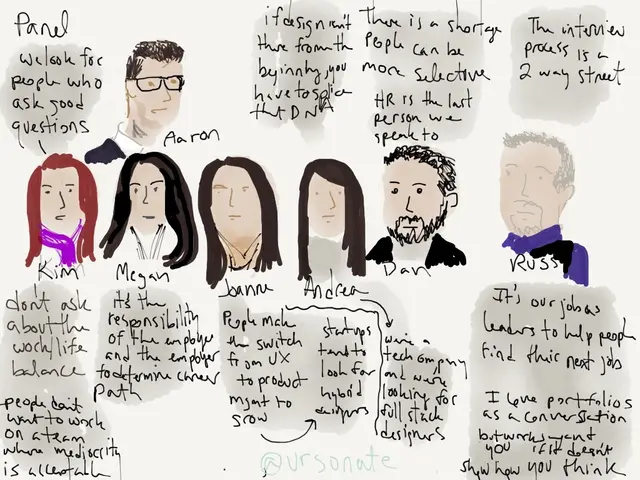 Panel
we look for
people who
ask good
questions
Aaron
if design isn't
there from the
beginning you
have to splice
that DNA
There is a shortage
People can be
more selective
HR is the last
person we
speak to
The interview
process is a
2 way street
Kim
Megan
Joanne
Andrea
Dan
Russ
don't ask
about the
work/life
balance
people don't
want to work
on a team
where mediocrity
is acceptable
It's the
responsibility
of the employer
and the employer
to determine career
path
People make
the switch
from UX
to product
mgmt to
grow
startups
tend to
look for
hybrid
designers
we're a
tech company
and we're
looking for
full stack
designers
It's our job as
leaders to help people
find their next job
I love portfolios
as a conversation
but works against
you if it doesn't
show how you think
@ursonate